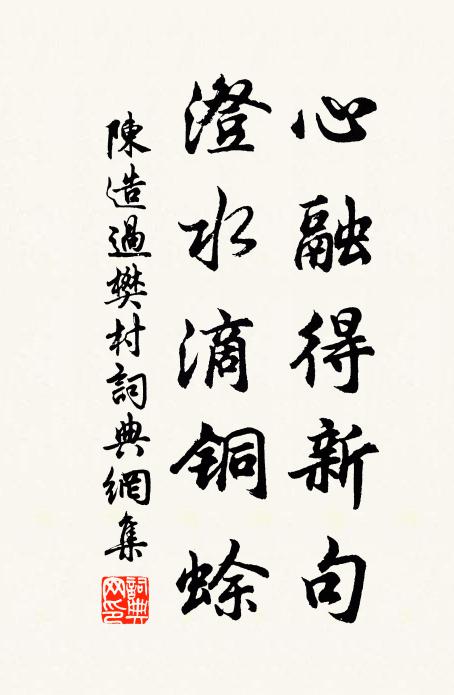 心融得新句
澄水滴铜蜍
陳造過樊村詞典網集
詞典网印